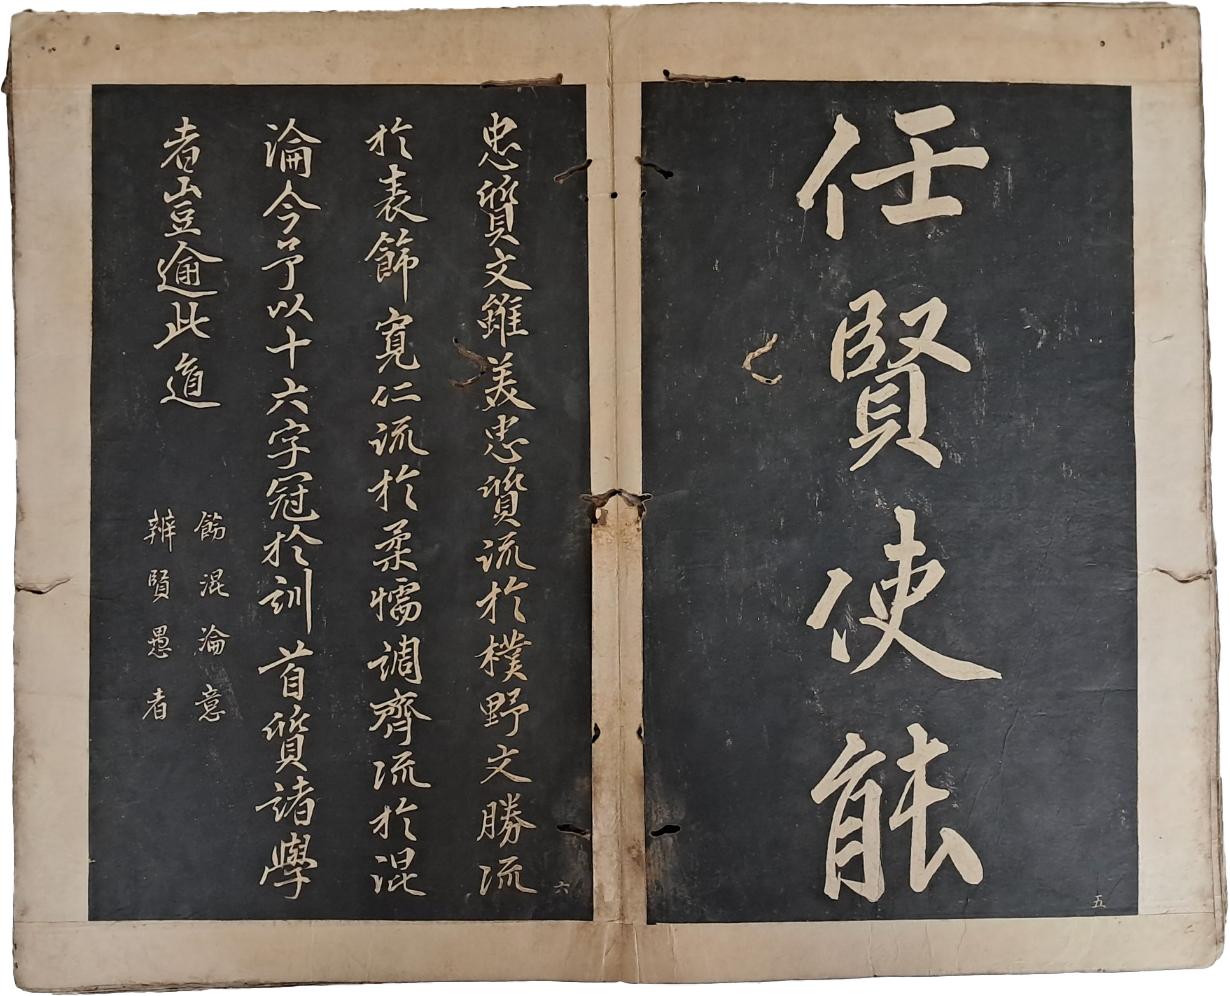 任賢使能
五
忠質文雖美忠質流於樸野文勝流
於表飾寬仁流於柔懦調齊流於混
淪今予以十六字冠於訓首質諸學
者豈逾此道
飾混淪意
辨賢愚者
六